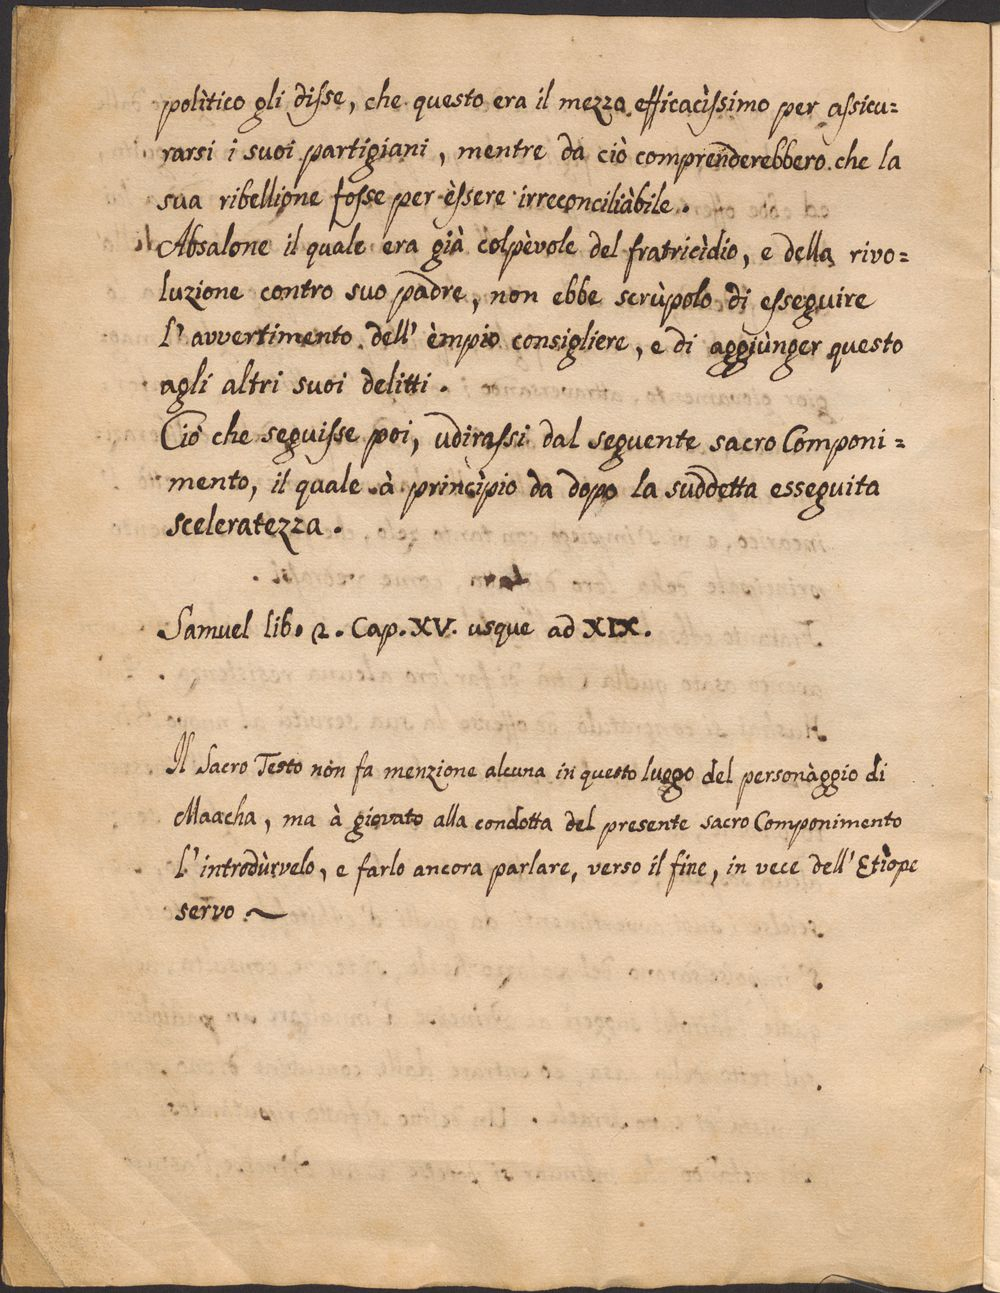 polìtico gli disse, che questo era il mezzo efficacìssimo per assicu=
rarsi i suoi partigiani, mentre da ciò comprenderebbero che la
sua ribellione fosse per èssere irreconciliàbile.
Absalone il quale era già colpèvole del fratricìdio, e della rivo=
luzione contro suo padre, non ebbe scrùpolo di esseguire
l'avvertimento dell'èmpio consigliere, e di aggiùnger questo
agli altri suoi delitti.
Ciò che seguisse poi, udirassi dal seguente sacro Componi=
mento, il quale à princìpio da dopo la suddetta esseguita
sceleratezza.
Samuel lib. 2. Cap. XV. usque ad XIX.
Il Sacro Testo nòn fa menzione alcuna in questo luogo del personàggio di
Maacha, ma à giovato alla condotta del presente sacro Componimento
l'introdùrvelo, e farlo ancora parlare, verso il fine, in vece dell'Etìope
servo